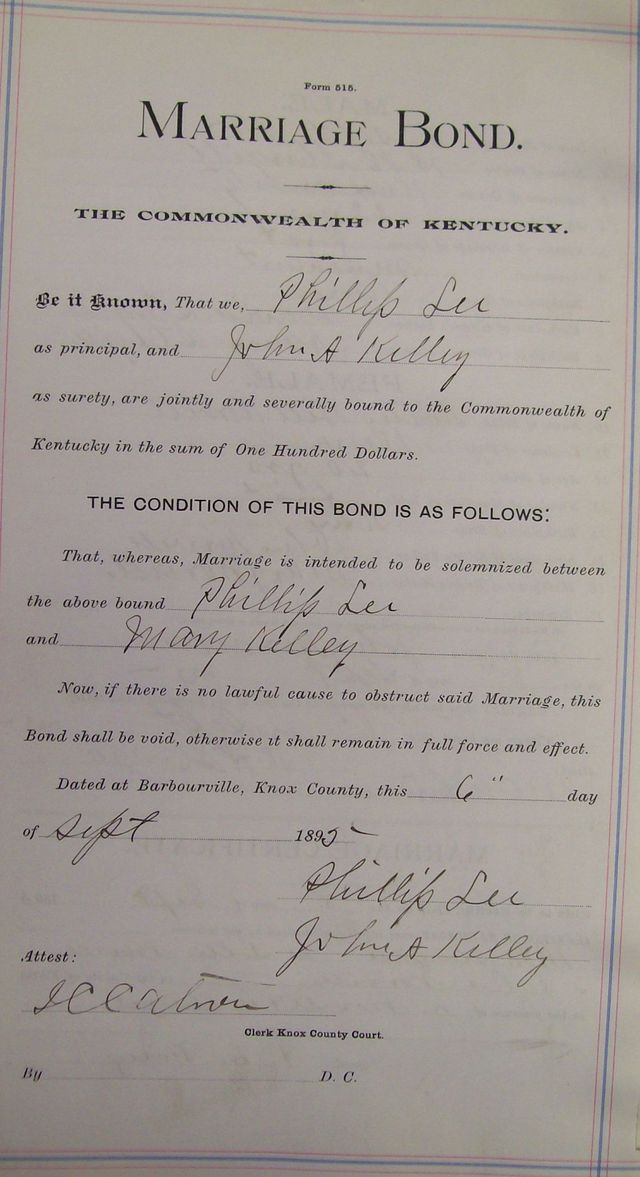 Form 515.
MARRIAGE BOND.
THE COMMONWEALTH OF KENTUCKY.
Be it Known, That we, Phillip Lee
as principal, and John A Kelley
as surety, are jointly and severally bound to the Commonwealth of
Kentucky in the sum of One Hundred Dollars.
THE CONDITION OF THIS BOND IS AS FOLLOWS:
That, whereas, Marriage is intended to be solemnized between
the above bound Phillip Lee
and Mary Kelley
Now, if there is no lawful cause to obstruct said Marriage, this
Bond shall be void, otherwise it shall remain in full force and effect.
Dated at Barbourville, Knox County, this 6" day
of Sept 1895
Phillip Lee
John A Kelley
Attest:
Clerk Knox County Court.
By D. C.